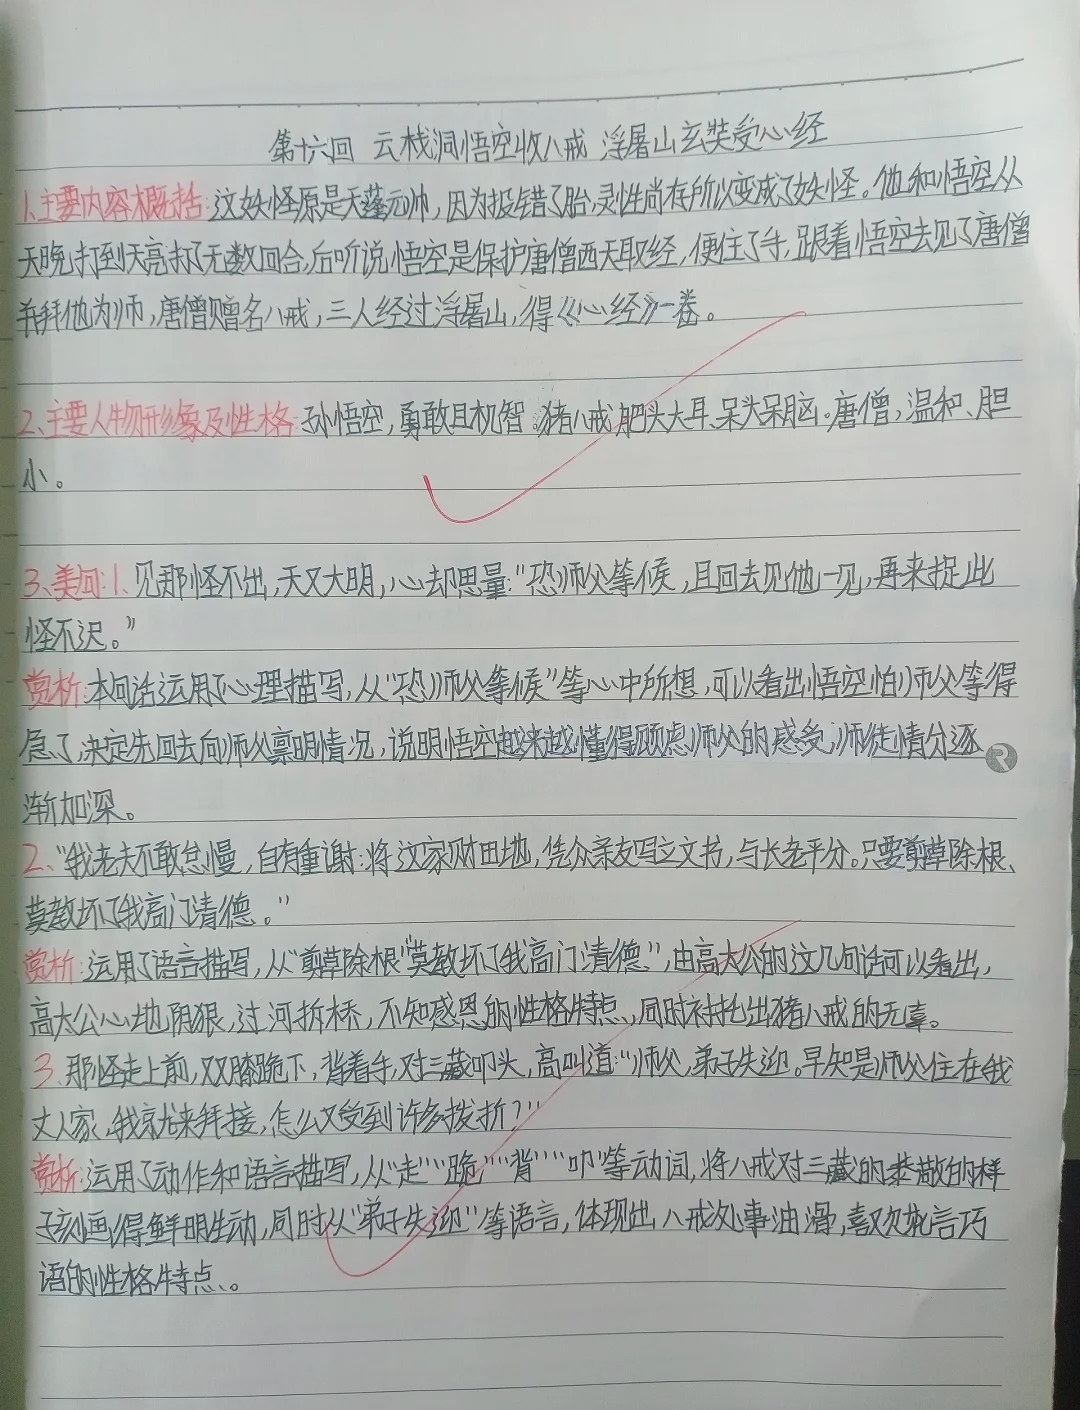 第十六回 云栈洞悟空收八戒 浮屠山玄奘受心经
1、主要内容概括:这妖怪原是天蓬元帅,因为投错了胎,灵性尚存所以变成了妖怪。他和悟空从
天晚打到天亮打了无数回合,后听说悟空是保护唐僧西天取经,便住了手,跟着悟空去见了唐僧
并拜他为师,唐僧赠名八戒,三人经过浮屠山,得《心经》一卷。
2、主要人物形象及性格:孙悟空,勇敢且机智。猪八戒肥头大耳、呆头呆脑。唐僧,温和、胆
小。
3、美句:1、见那怪不出,天又大明,心却思量:“恐师父等候,且回去见他一见,再来捉此
怪不迟。”
赏析:本句话运用了心理描写,从“恐师父等候”等心中所想,可以看出悟空怕师父等得
急了,决定先回去向师父禀明情况,说明悟空越来越懂得顾虑师父的感受,师徒情分逐
渐加深。
2、“我老夫不敢怠慢,自有重谢:将这家财田地,凭众亲友写立文书,与长老平分。只要剪草除根、
莫教坏了我高门清德。”
赏析:运用了语言描写,从“剪草除根”“莫教坏了我高门清德”,由高太公的这几句话可以看出,
高太公心地阴狠,过河拆桥,不知感恩的性格特点,同时衬托出猪八戒的无辜。
3、那怪走上前,双膝跪下,背着手,对三藏叩头,高叫道:“师父,弟子失迎。早知是师父住在我
丈人家,我就来拜接,怎么又受到许多拨折?”
赏析:运用了动作和语言描写,从“走”“跪”“背”“叩”等动词,将八戒对三藏的恭敬的样
子刻画得鲜明生动,同时从“弟子失迎”等语言,体现出八戒处事油滑,喜欢花言巧
语的性格特点。